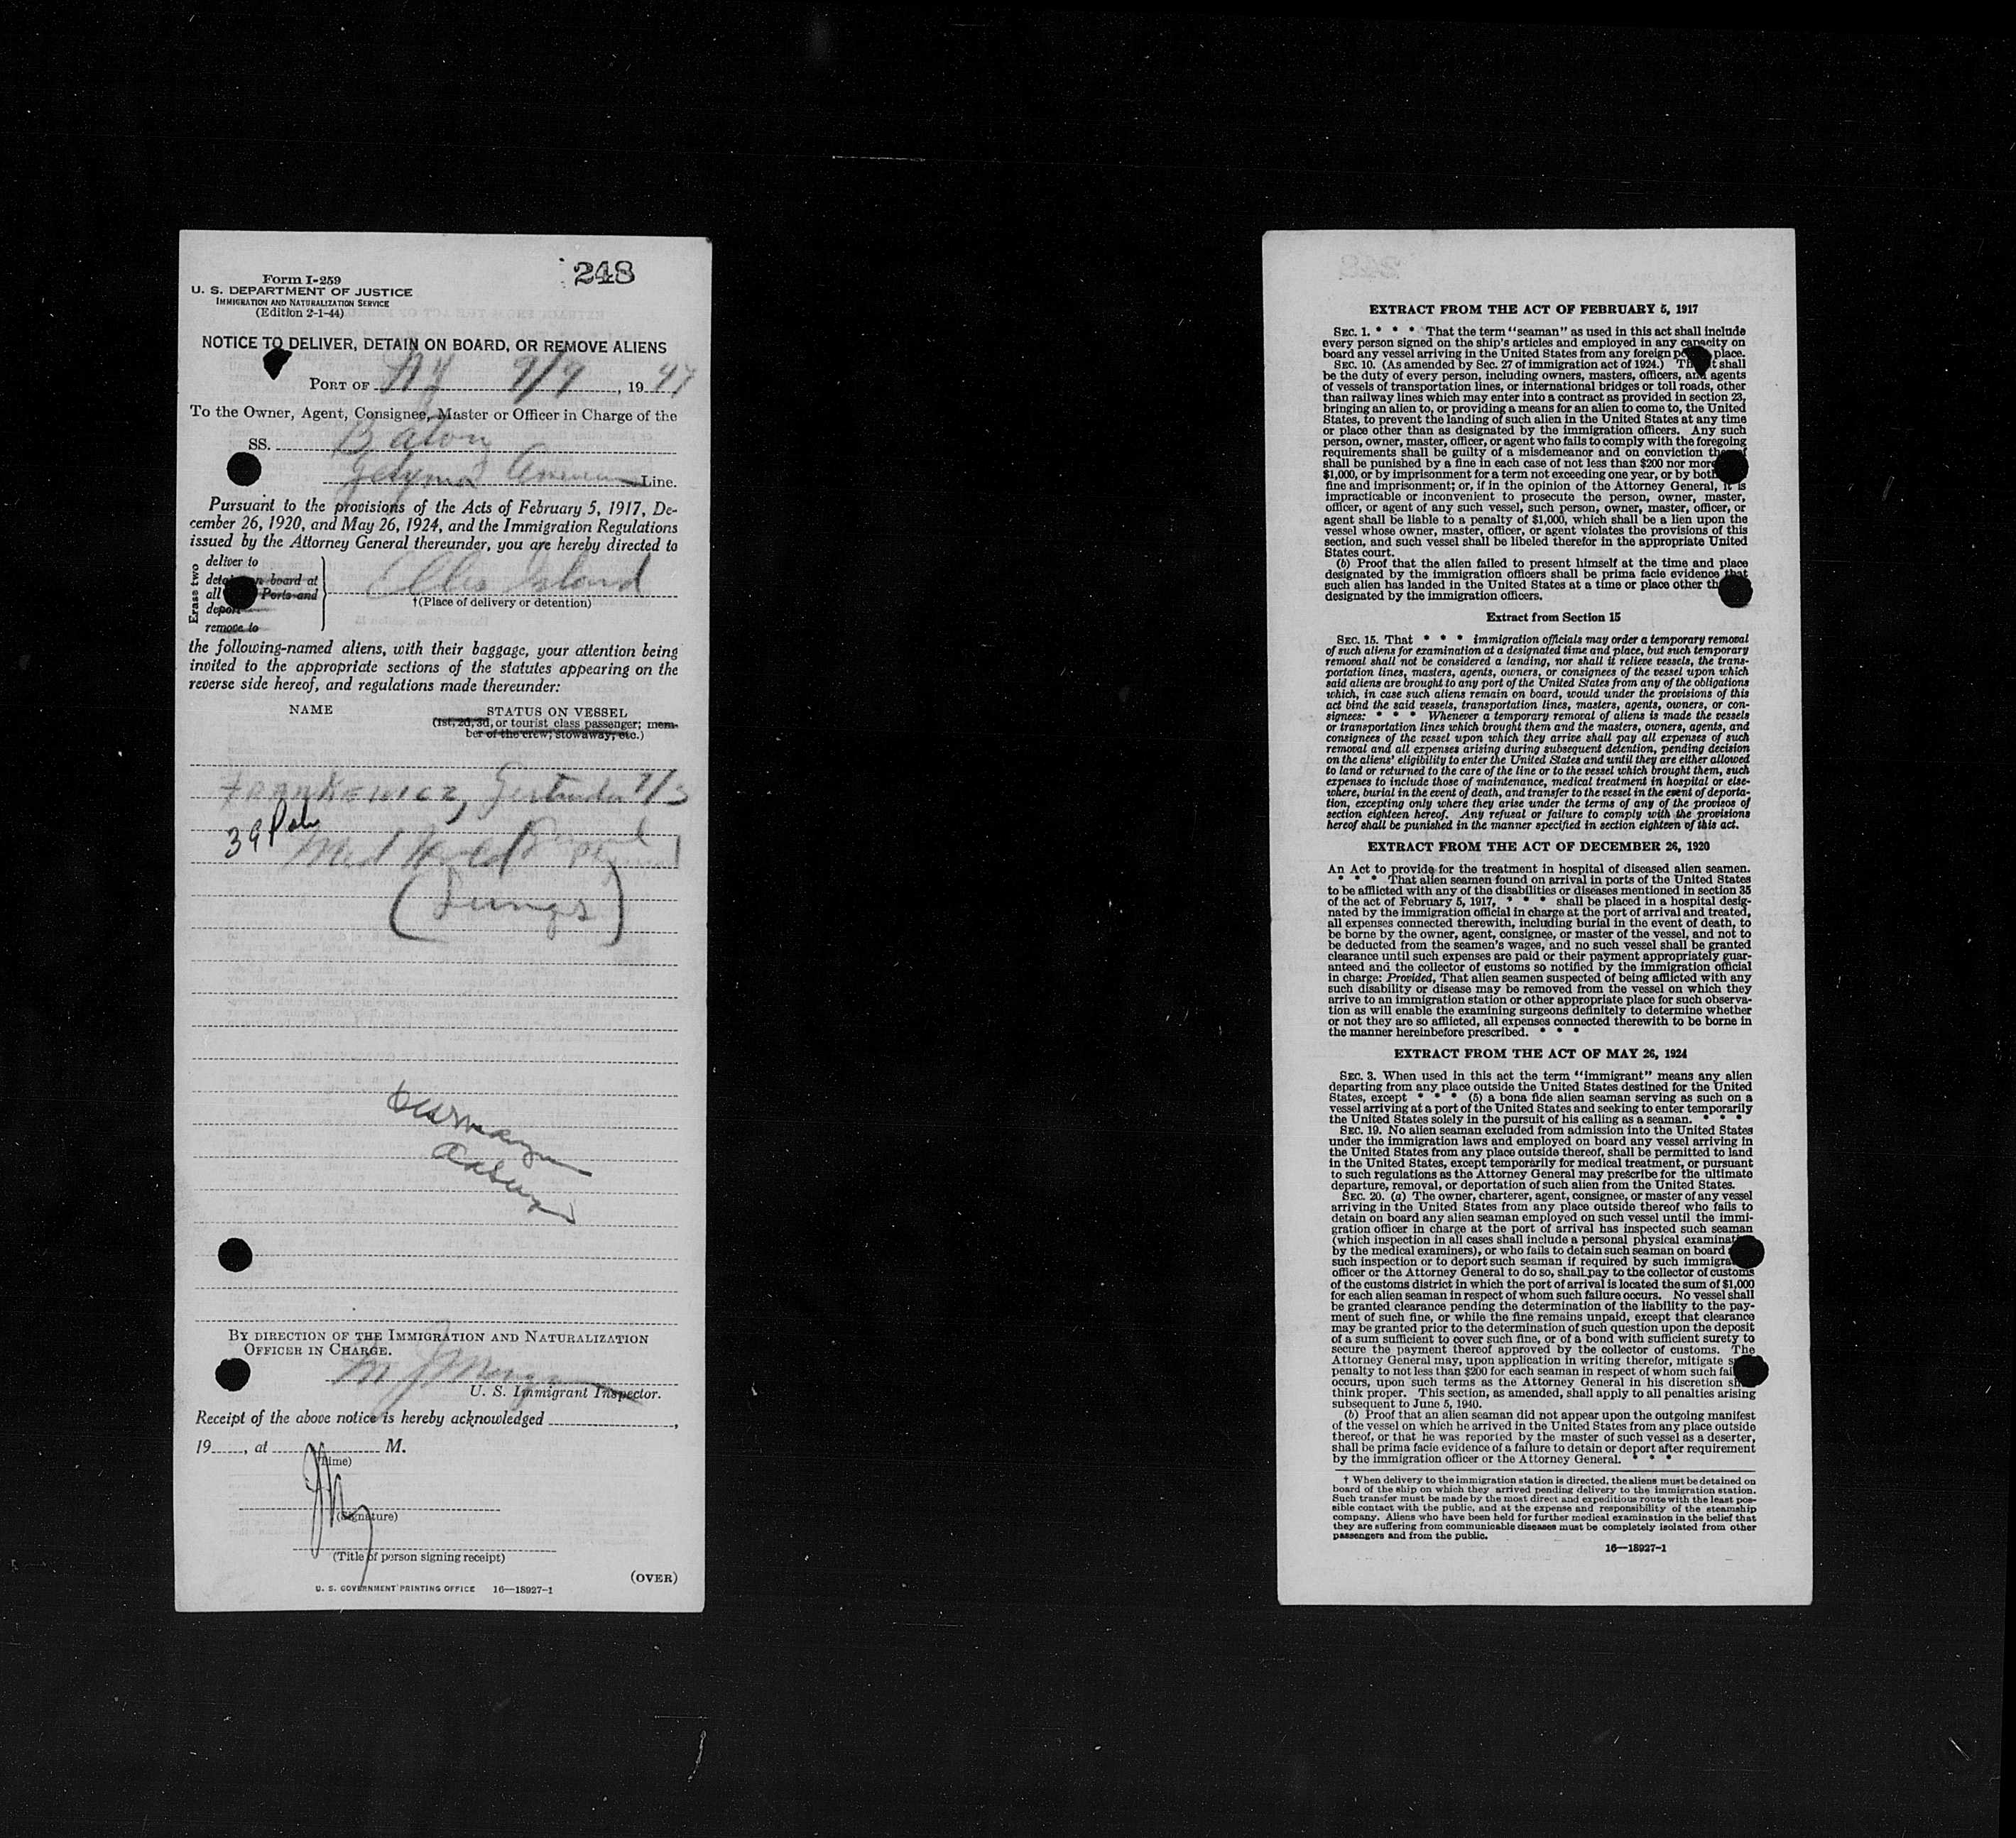 248
Form I-259
U. S. DEPARTMENT OF JUSTICE
IMMIGRATION AND NATURALIZATION SERVICE
(Edition 2-1-44)
NOTICE TO DELIVER, DETAIN ON BOARD, OR REMOVE ALIENS
PORT OF NY 9/9, 1947
To the Owner, Agent, Consignee, Master or Officer in Charge of the
SS. Batory
Gdynia American Line.
Pursuant to the provisions of the Acts of February 5, 1917, De-
cember 26, 1920, and May 26, 1924, and the Immigration Regulations
issued by the Attorney General thereunder, you are hereby directed to
Erase two
deliver to
detain on board at
all Ports and
deport
remove to
Ellis Island
†(Place of delivery or detention)
the following-named aliens, with their baggage, your attention being
invited to the appropriate sections of the statutes appearing on the
reverse side hereof, and regulations made thereunder:
NAME
STATUS ON VESSEL
(1st, 2d, 3d, or tourist class passenger; mem-
ber of the crew; stowaway, etc.)
Frankewicz, Gertruda 7/3
39 Pole
Med Held
(Lungs)
BY DIRECTION OF THE IMMIGRATION AND NATURALIZATION
OFFICER IN CHARGE.
M J Morgan
U. S. Immigrant Inspector.
Receipt of the above notice is hereby acknowledged
19, at M.
(Time)
(Signature)
(Title of person signing receipt)
(OVER)
U. S. GOVERNMENT PRINTING OFFICE 16—18927-1
EXTRACT FROM THE ACT OF FEBRUARY 5, 1917
SEC. 1. * * * That the term "seaman" as used in this act shall include
every person signed on the ship's articles and employed in any capacity on
board any vessel arriving in the United States from any foreign place.
SEC. 10. (As amended by Sec. 27 of immigration act of 1924.) That it shall
be the duty of every person, including owners, masters, officers, and agents
of vessels of transportation lines, or international bridges or toll roads, other
than railway lines which may enter into a contract as provided in section 23,
bringing an alien to, or providing a means for an alien to come to, the United
States, to prevent the landing of such alien in the United States at any time
or place other than as designated by the immigration officers. Any such
person, owner, master, officer, or agent who fails to comply with the foregoing
requirements shall be guilty of a misdemeanor and on conviction thereof
shall be punished by a fine in each case of not less than $200 nor more
$1,000, or by imprisonment for a term not exceeding one year, or by both
fine and imprisonment; or, if in the opinion of the Attorney General, it is
impracticable or inconvenient to prosecute the person, owner, master,
officer, or agent of any such vessel, such person, owner, master, officer, or
agent shall be liable to a penalty of $1,000, which shall be a lien upon the
vessel whose owner, master, officer, or agent violates the provisions of this
section, and such vessel shall be libeled therefor in the appropriate United
States court.
(b) Proof that the alien failed to present himself at the time and place
designated by the immigration officers shall be prima facie evidence that
such alien has landed in the United States at a time or place other than
designated by the immigration officers.
Extract from Section 15
SEC. 15. That * * * immigration officials may order a temporary removal
of such aliens for examination at a designated time and place, but such temporary
removal shall not be considered a landing, nor shall it relieve vessels, the trans-
portation lines, masters, agents, owners, or consignees of the vessel upon which
said aliens are brought to any port of the United States from any of the obligations
which, in case such aliens remain on board, would under the provisions of this
act bind the said vessels, transportation lines, masters, agents, owners, or con-
signees: * * * Whenever a temporary removal of aliens is made the vessels
or transportation lines which brought them and the masters, owners, agents, and
consignees of the vessel upon which they arrive shall pay all expenses of such
removal and all expenses arising during subsequent detention, pending decision
on the aliens' eligibility to enter the United States and until they are either allowed
to land or returned to the care of the line or to the vessel which brought them, such
expenses to include those of maintenance, medical treatment in hospital or else-
where, burial in the event of death, and transfer to the vessel in the event of deporta-
tion, excepting only where they arise under the terms of any of the provisos of
section eighteen hereof. Any refusal or failure to comply with the provisions
hereof shall be punished in the manner specified in section eighteen of this act.
EXTRACT FROM THE ACT OF DECEMBER 26, 1920
An Act to provide for the treatment in hospital of diseased alien seamen.
* * * That alien seamen found on arrival in ports of the United States
to be afflicted with any of the disabilities or diseases mentioned in section 35
of the act of February 5, 1917, * * * shall be placed in a hospital desig-
nated by the immigration official in charge at the port of arrival and treated,
all expenses connected therewith, including burial in the event of death, to
be borne by the owner, agent, consignee, or master of the vessel, and not to
be deducted from the seamen's wages, and no such vessel shall be granted
clearance until such expenses are paid or their payment appropriately guar-
anteed and the collector of customs so notified by the immigration official
in charge: Provided, That alien seamen suspected of being afflicted with any
such disability or disease may be removed from the vessel on which they
arrive to an immigration station or other appropriate place for such observa-
tion as will enable the examining surgeons definitely to determine whether
or not they are so afflicted, all expenses connected therewith to be borne in
the manner hereinbefore prescribed. * * *
EXTRACT FROM THE ACT OF MAY 26, 1924
SEC. 3. When used in this act the term "immigrant" means any alien
departing from any place outside the United States destined for the United
States, except * * * (5) a bona fide alien seaman serving as such on a
vessel arriving at a port of the United States and seeking to enter temporarily
the United States solely in the pursuit of his calling as a seaman. * * *
SEC. 19. No alien seaman excluded from admission into the United States
under the immigration laws and employed on board any vessel arriving in
the United States from any place outside thereof, shall be permitted to land
in the United States, except temporarily for medical treatment, or pursuant
to such regulations as the Attorney General may prescribe for the ultimate
departure, removal, or deportation of such alien from the United States.
SEC. 20. (a) The owner, charterer, agent, consignee, or master of any vessel
arriving in the United States from any place outside thereof who fails to
detain on board any alien seaman employed on such vessel until the immi-
gration officer in charge at the port of arrival has inspected such seaman
(which inspection in all cases shall include a personal physical examination
by the medical examiners), or who fails to detain such seaman on board
such inspection or to deport such seaman if required by such immigration
officer or the Attorney General to do so, shall pay to the collector of customs
of the customs district in which the port of arrival is located the sum of $1,000
for each alien seaman in respect of whom such failure occurs. No vessel shall
be granted clearance pending the determination of the liability to the pay-
ment of such fine, or while the fine remains unpaid, except that clearance
may be granted prior to the determination of such question upon the deposit
of a sum sufficient to cover such fine, or of a bond with sufficient surety to
secure the payment thereof approved by the collector of customs. The
Attorney General may, upon application in writing therefor, mitigate such
penalty to not less than $200 for each seaman in respect of whom such failure
occurs, upon such terms as the Attorney General in his discretion shall
think proper. This section, as amended, shall apply to all penalties arising
subsequent to June 5, 1940.
(b) Proof that an alien seaman did not appear upon the outgoing manifest
of the vessel on which he arrived in the United States from any place outside
thereof, or that he was reported by the master of such vessel as a deserter,
shall be prima facie evidence of a failure to detain or deport after requirement
by the immigration officer or the Attorney General. * * *
† When delivery to the immigration station is directed, the aliens must be detained on
board of the ship on which they arrived pending delivery to the immigration station.
Such transfer must be made by the most direct and expeditious route with the least pos-
sible contact with the public, and at the expense and responsibility of the steamship
company. Aliens who have been held for further medical examination in the belief that
they are suffering from communicable diseases must be completely isolated from other
passengers and from the public.
16—18927-1